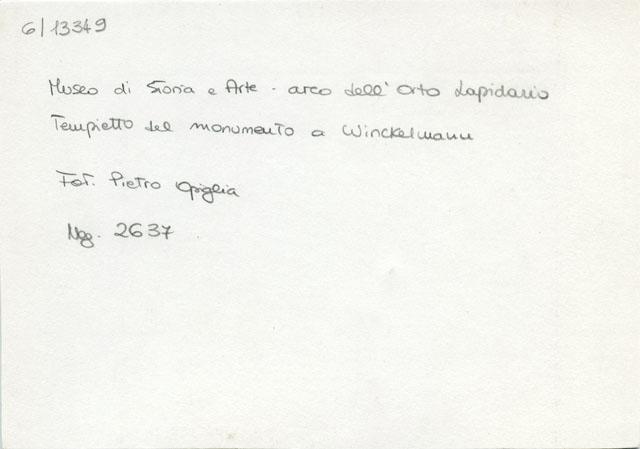 6/13349
Museo di Storia e Arte - arco dell'Orto Lapidario
Tempietto del monumento a Winckelmann
Fot. Pietro Opiglia
Neg. 2637